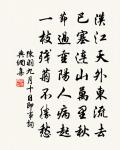 漢江天外東流去
巴塞連山萬里秋
節過重陽人病起
一枝殘菊不勝愁
陳羽九月十日即事詩
典網集